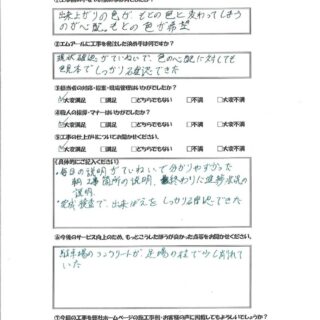 出来上がりの色が、もとの色と変わってしまう
のが心配。もとの色が希望
②エムアールに工事を発注した決め手は何ですか?
現状確認がていねいで、色の心配に対しても
見本でしっかり確認できた
③担当者の対応・提案・現場管理はいかがでしたか?
☑大変満足 □満足 □どちらでもない □不満 □大変不満
④職人の挨拶・マナーはいかがでしたか?
☑大変満足 □満足 □どちらでもない □不満 □大変不満
⑤工事の仕上がりについてお聞かせください。
☑大変満足 □満足 □どちらでもない □不満 □大変不満
(具体的にご記入ください)
・毎日の説明がていねいで分かりやすかった
朝 工事箇所の説明、終わりに進捗状況の
説明。
・完成検査で、出来ばえをしっかり確認できた
⑥今後のサービス向上のため、もっとこうしたほうが良かった点等をお聞かせください。
駐車場のコンクリートが足場の柱で少し削れて
いた
⑦今回の工事を弊社ホームページの施工事例・お客様の声に掲載してもよろしいでしょうか?